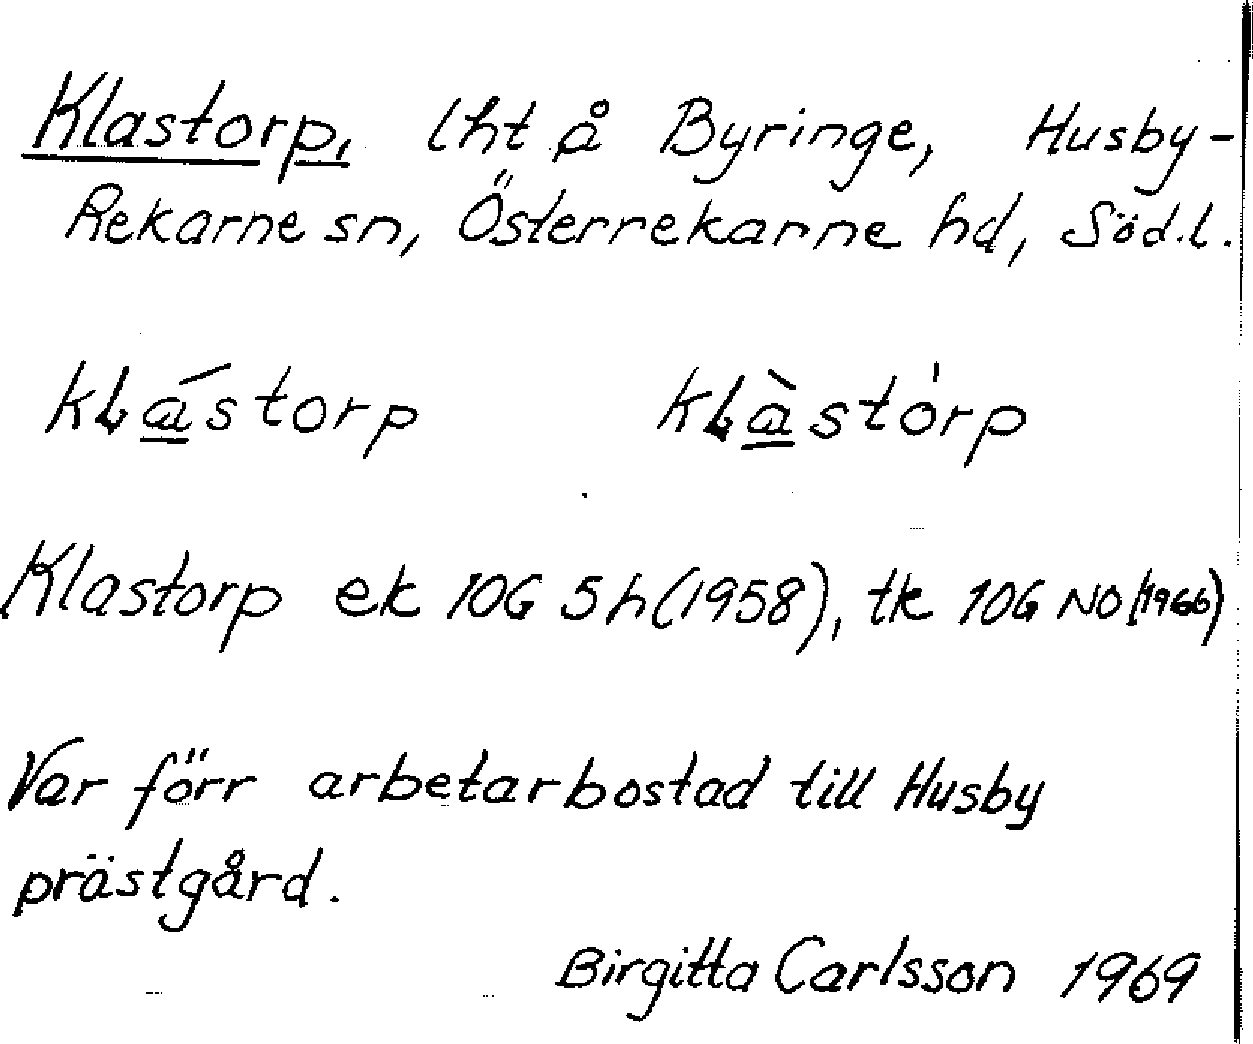 Klastorp, lht å Byringe, Husby-
Rekarne sn, Österrekarne hd, Söd.l.
klástorp klàstòrp
Klastorp ek 10G 5h (1958), tk 10G NO (1966)
Var förr arbetarbostad till Husby
prästgård.
Birgitta Carlsson 1969